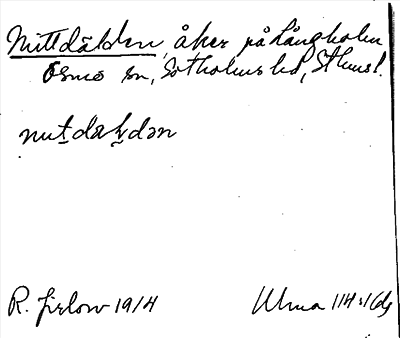 Nuttdälden, åker på Långholm
Ösmo sn, Sotholms hd, Sthms l.
nut̠dæl̬dən
R. Jirlow 1914 Ulma 114:1